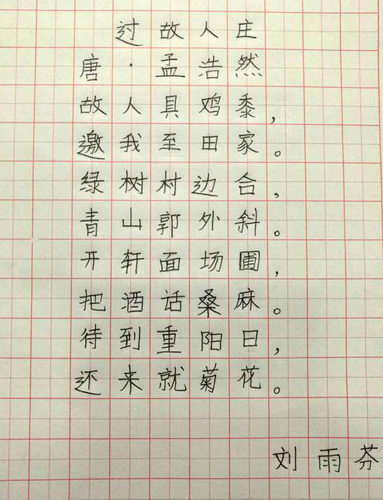 过故人庄
唐·孟浩然
故人具鸡黍，
邀我至田家。
绿树村边合，
青山郭外斜。
开轩面场圃，
把酒话桑麻。
待到重阳日，
还来就菊花。
刘雨芬